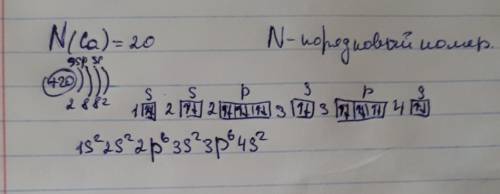 N(Ca)=20 N-порядковый номер.
s sp sp
+20
2 8 8 2
s s p s p s
1 2 2 3 3 4
1s²2s²2p⁶3s²3p⁶4s²